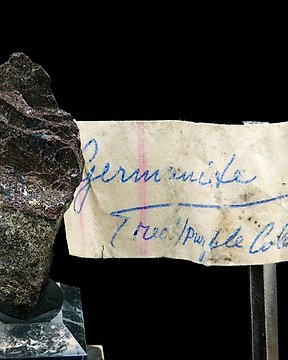 Germanite
True purple Col